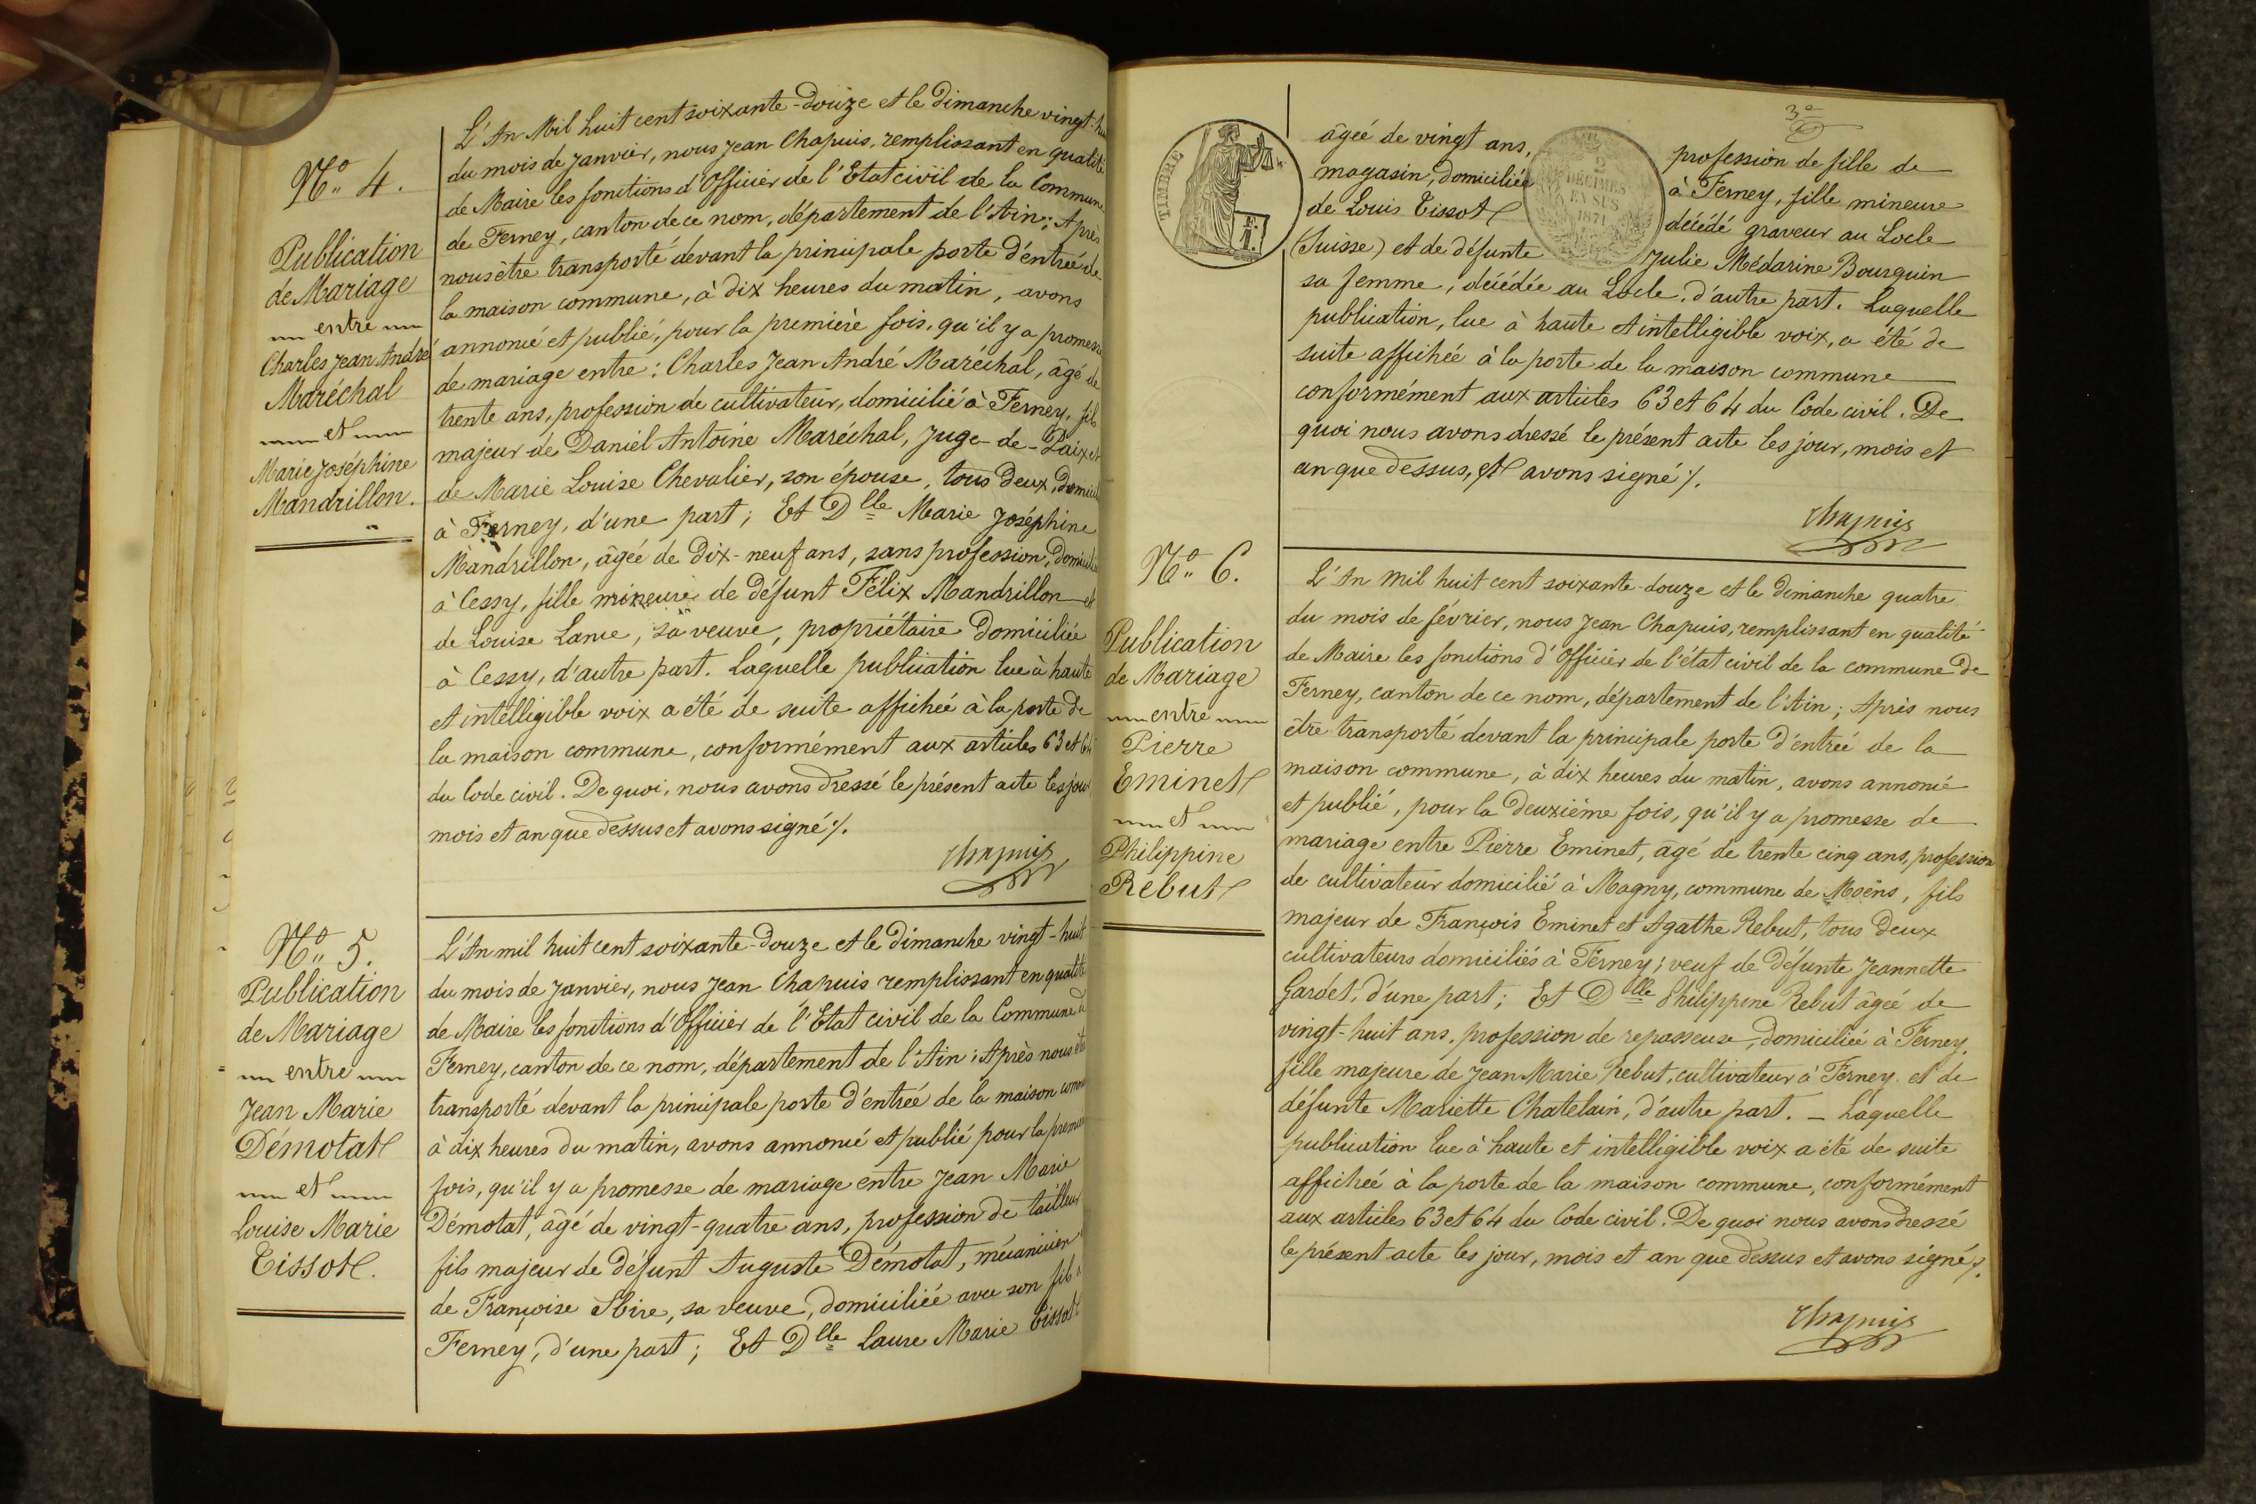 N° 4.
Publication
de Mariage
entre
Charles Jean André
Maréchal
et
Marie Joséphine
Mandrillon.
L'An Mil huit cent soixante-douze et le Dimanche vingt-hui
du mois de Janvier, nous Jean Chapuis, remplissant en qualité
de Maire les fonctions d'Officier de l'Etat civil de la Commune
de Ferney, canton de ce nom, département de l'Ain; Après
nous être transporté devant la principale porte d'entrée de
la maison commune, à dix heures du matin, avons
annoncé et publié, pour la première fois, qu'il y a promesse
de mariage entre: Charles Jean André Maréchal, âgé de
trente ans, profession de cultivateur, domicilié à Ferney, fils
majeur de Daniel Antoine Maréchal, Juge-de-Paix et
de Marie Louise Chevalier, son épouse, tous deux, domicil
à Ferney, d'une part; Et Dlle Marie Joséphine
Mandrillon, âgée de Dix-neuf ans, sans profession, Domicili
à Cessy, fille mineure de défunt Félix Mandrillon et
de Louise Lance, sa veuve, propriétaire Domiciliée
à Cessy, d'autre part. Laquelle publication lue à haute
et intelligible voix a été de suite affichée à la porte de
la maison commune, conformément aux articles 63 et 64
du Code civil. De quoi, nous avons dressé le présent acte les jour
mois et an que dessus et avons signé ./.
Chapuis
N° 5.
Publication
de Mariage
entre
Jean Marie
Démotat
et
Louise Marie
Tissot.
L'An mil huit cent soixante-douze et le Dimanche vingt-huit
du mois de Janvier, nous Jean Chapuis remplissant en qualité
de Maire les fonctions d'Officier de l'Etat civil de la Commune d
Ferney, canton de ce nom, département de l'Ain; Après nous êt
transporté devant la principale porte d'entrée de la maison comm
à dix heures du matin, avons annoncé et publié pour la premie
fois, qu'il y a promesse de mariage entre Jean Marie
Démotat, âgé de vingt-quatre ans, profession de tailleur
fils majeur de défunt Auguste Démotat, mécanicien
de Françoise sa veuve, domiciliée avec son fils à
Ferney, d'une part; Et Dlle Laure Marie Tissot
3e
TIMBRE
2
DÉCIMES
EN SUS
1871
âgée de vingt ans, profession de fille de
magasin, domiciliée à Ferney, fille mineure
de Louis Tissot décédé graveur au Locle
(Suisse) et de défunte Julie Médarine Bourquin
sa femme, décédée au Locle, d'autre part. Laquelle
publication, lue à haute et intelligible voix, a été de
suite affichée à la porte de la maison commune
conformément aux articles 63 et 64 du Code civil. De
quoi nous avons dressé le présent acte les jour, mois et
an que dessus, et avons signé ./.
Chapuis
N° 6.
Publication
de Mariage
entre
Pierre
Eminet
et
Philippine
Rebut
L'An mil huit cent soixante-douze et le Dimanche quatre
du mois de février, nous Jean Chapuis, remplissant en qualité
de Maire les fonctions d'Officier de l'état civil de la commune De
Ferney, canton de ce nom, département de l'Ain; Après nous
être transporté devant la principale porte d'entrée de la
maison commune, à dix heures du matin, avons annoncé
et publié, pour la Deuxième fois, qu'il y a promesse de
mariage entre Pierre Eminet, âgé de trente cinq ans, profession
de cultivateur domicilié à Magny, commune de Moëns, fils
majeur de François Eminet et Agathe Rebut, tous Deux
cultivateurs domiciliés à Ferney; veuf de défunte Jeannette
Gardet, d'une part; Et Dlle Philippine Rebut âgée de
vingt-huit ans, profession de repasseuse, domiciliée à Ferney,
fille majeure de Jean Marie Rebut, cultivateur à Ferney et de
défunte Mariette Chatelain, d'autre part. — Laquelle
publication lue à haute et intelligible voix a été de suite
affichée à la porte de la maison commune, conformément
aux articles 63 et 64 du Code civil. De quoi nous avons dressé
le présent acte les jour, mois et an que dessus et avons signé ./.
Chapuis